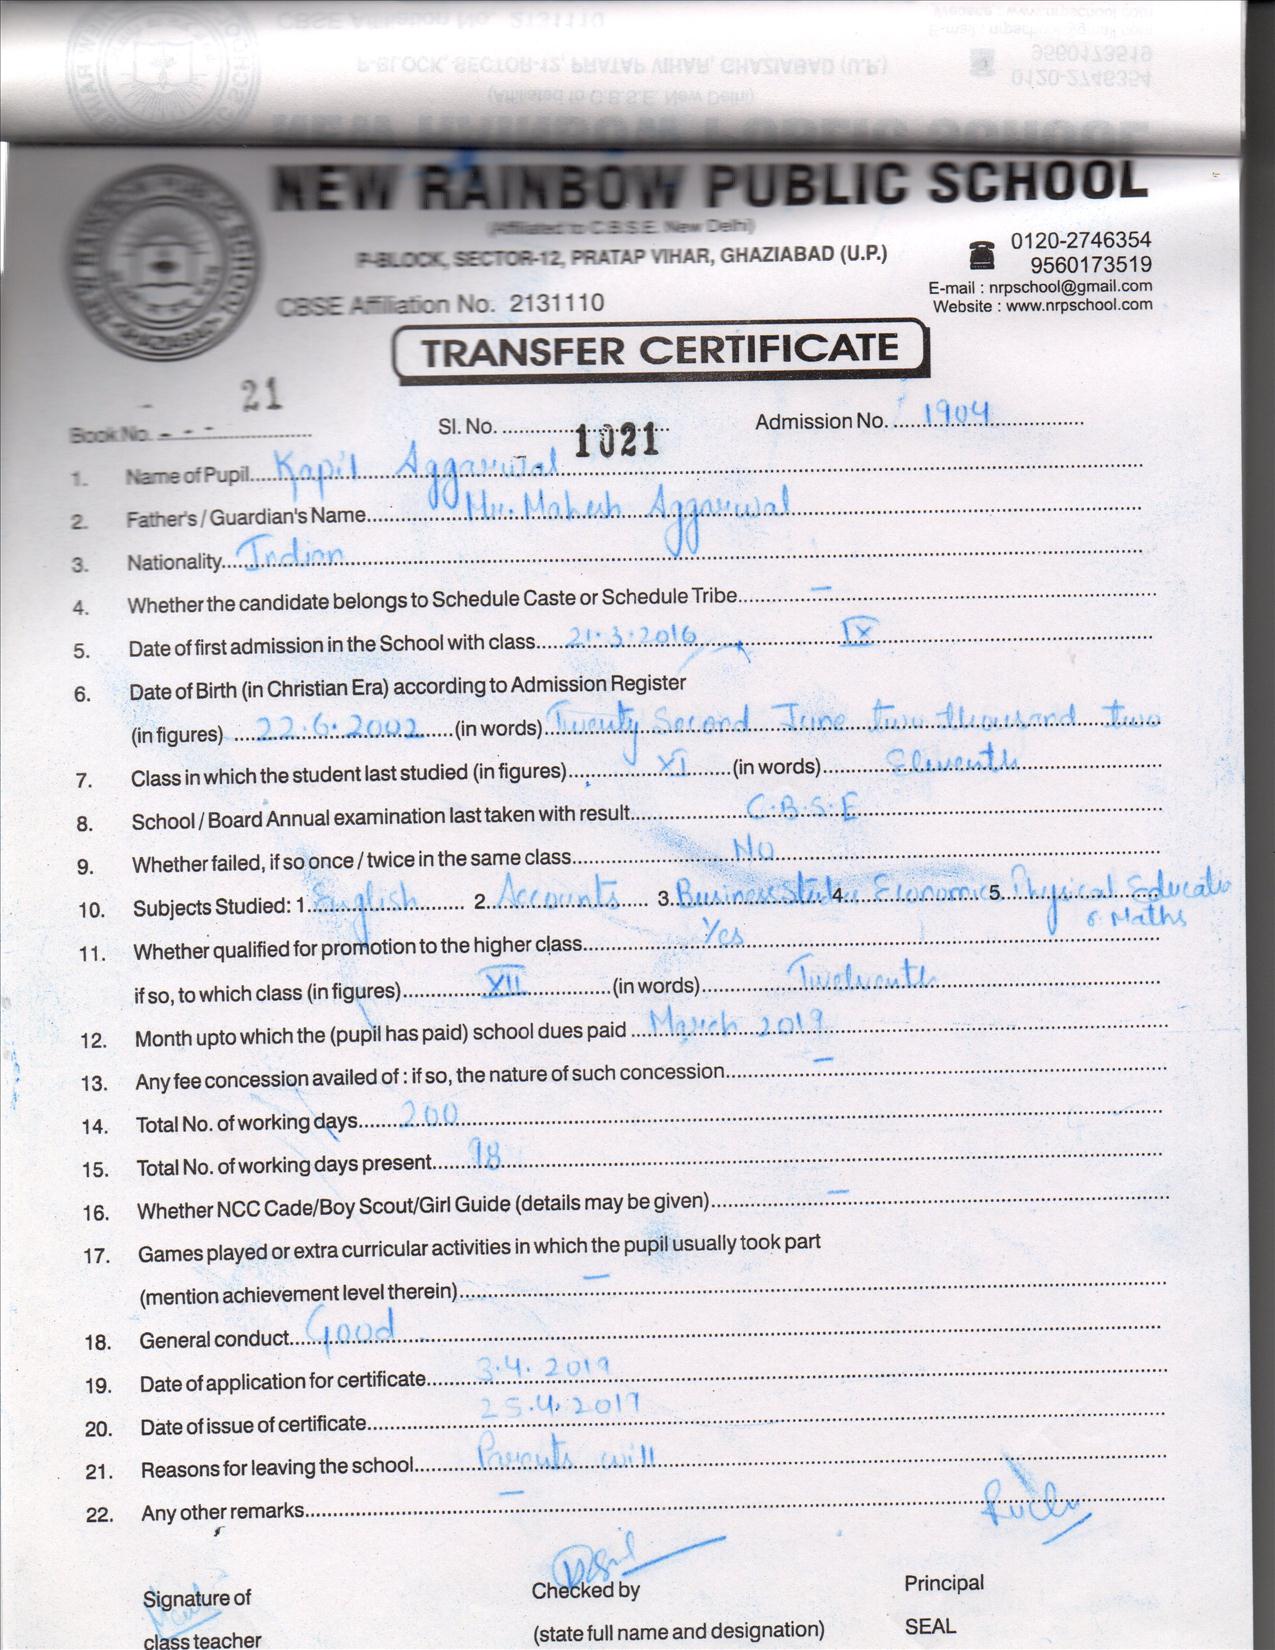 NEW RAINBOW PUBLIC SCHOOL
(Affiliated to C.B.S.E. New Delhi)
P-BLOCK, SECTOR-12, PRATAP VIHAR, GHAZIABAD (U.P.)
0120-2746354
9560173519
E-mail : nrpschool@gmail.com
Website : www.nrpschool.com
CBSE Affiliation No. 2131110
TRANSFER CERTIFICATE
Book No. 21 Sl. No. 1021 Admission No. 1904
1. Name of Pupil Kapil Aggarwal
2. Father's / Guardian's Name Mr. Mahesh Aggarwal
3. Nationality Indian
4. Whether the candidate belongs to Schedule Caste or Schedule Tribe –
5. Date of first admission in the School with class 21.3.2016 IX
6. Date of Birth (in Christian Era) according to Admission Register
(in figures) 22.6.2002 (in words) Twenty Second June two thousand two
7. Class in which the student last studied (in figures) XI (in words) Eleventh
8. School / Board Annual examination last taken with result C.B.S.E
9. Whether failed, if so once / twice in the same class No
10. Subjects Studied: 1 English 2. Accounts 3. Business Studies 4. Economics 5. Physical Educatio
& Maths
11. Whether qualified for promotion to the higher class Yes
if so, to which class (in figures) XII (in words) Twelventh
12. Month upto which the (pupil has paid) school dues paid March 2019
13. Any fee concession availed of : if so, the nature of such concession –
14. Total No. of working days 200
15. Total No. of working days present 98
16. Whether NCC Cade/Boy Scout/Girl Guide (details may be given) –
17. Games played or extra curricular activities in which the pupil usually took part
(mention achievement level therein) –
18. General conduct Good
19. Date of application for certificate 3.4.2019
20. Date of issue of certificate 25.4.2019
21. Reasons for leaving the school Parents will
22. Any other remarks –
Signature of Checked by Principal
class teacher (state full name and designation) SEAL